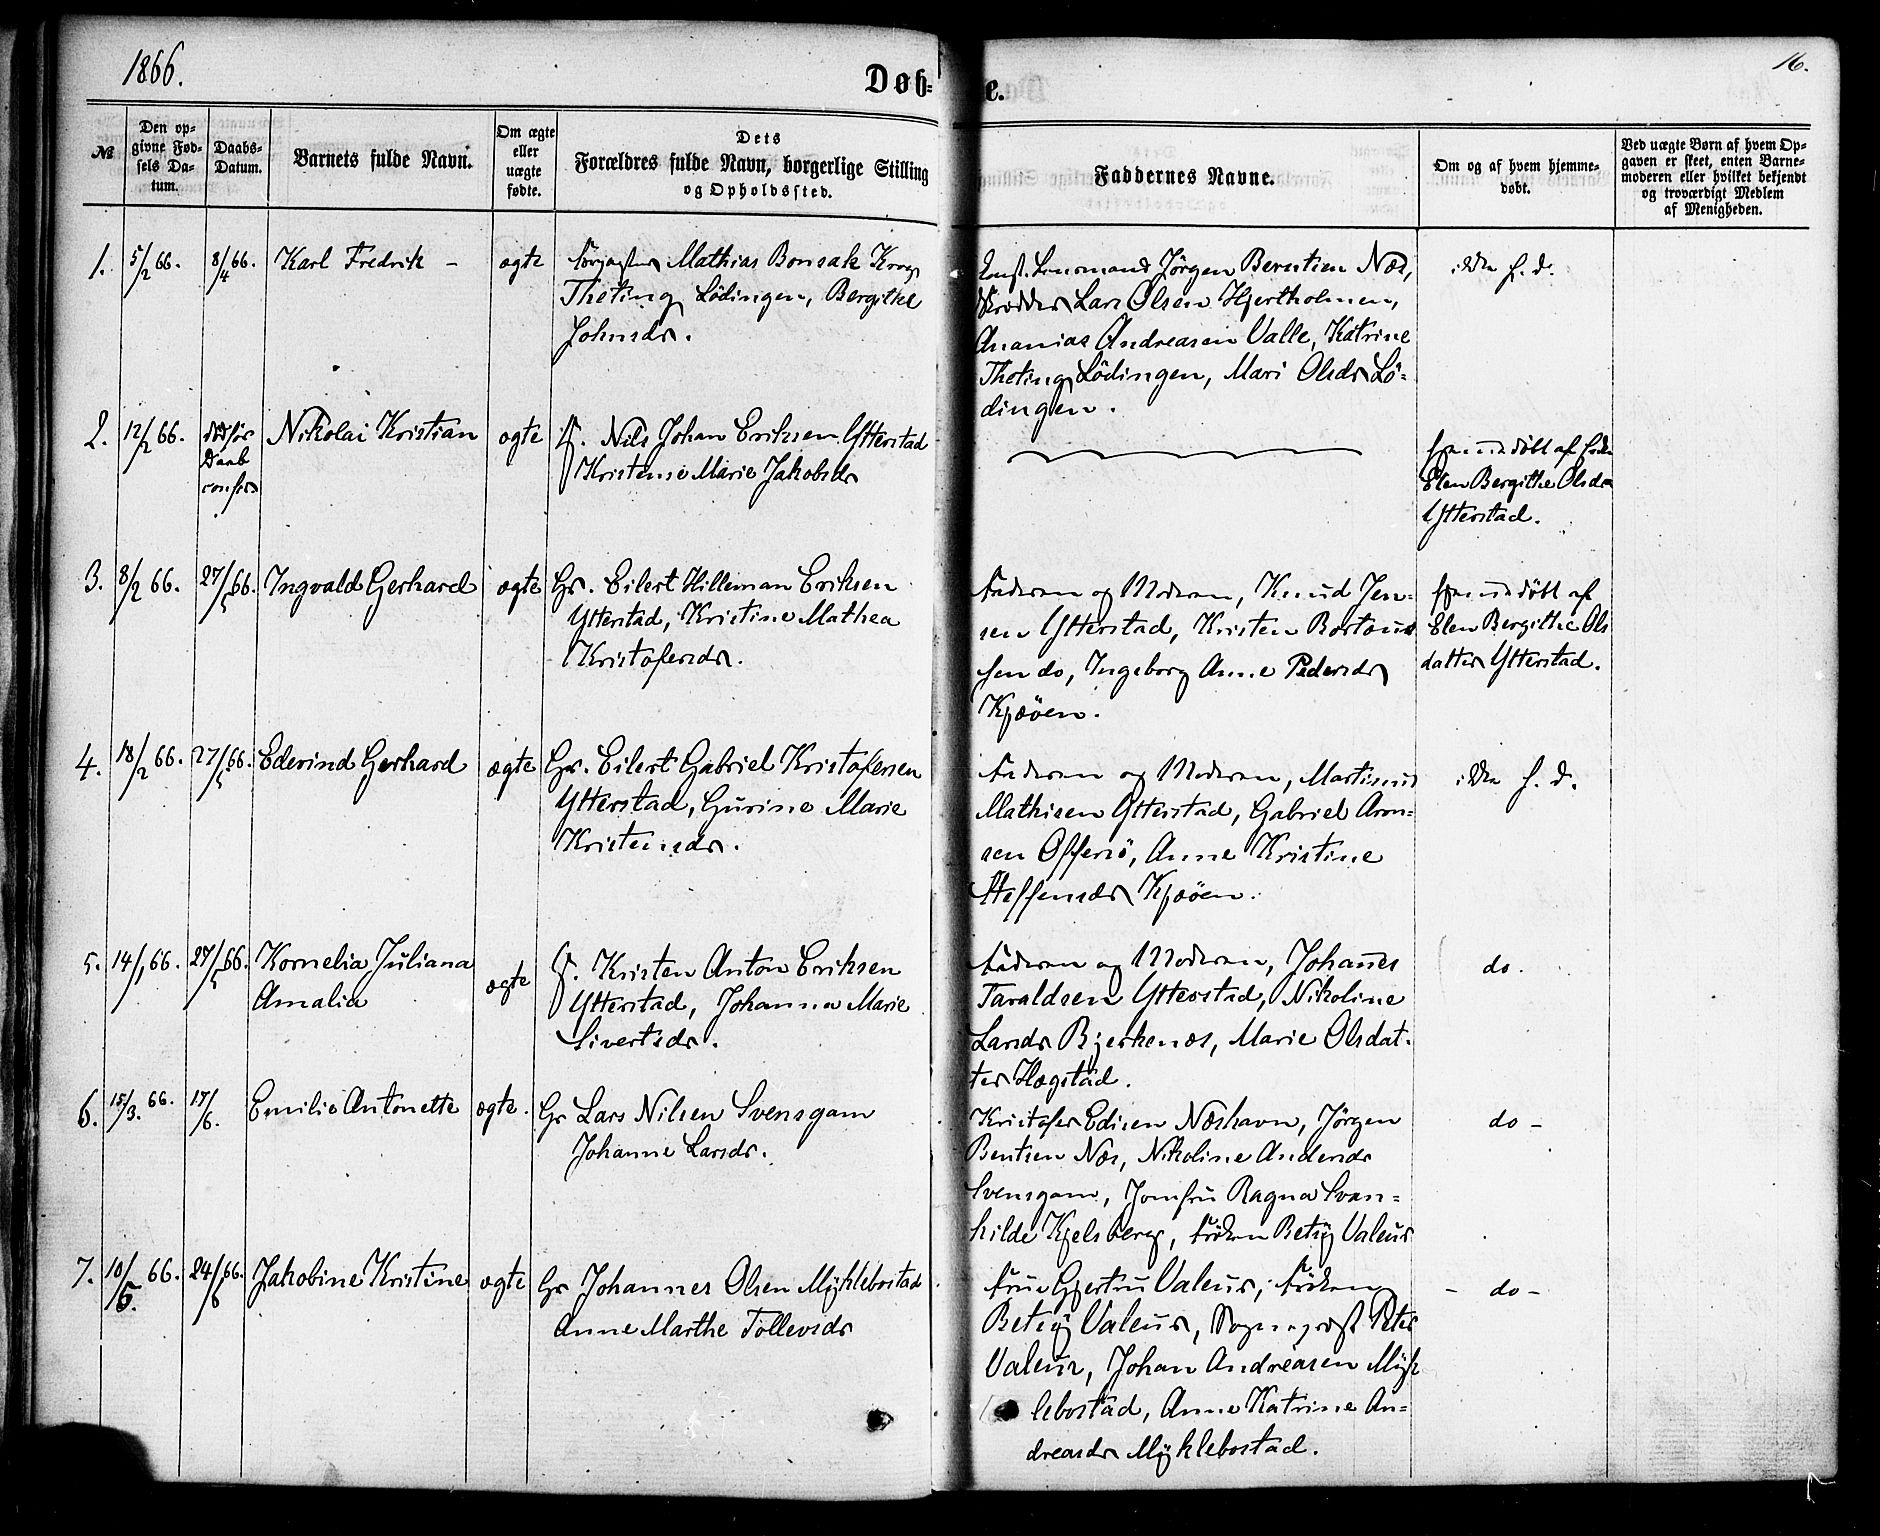 1866.
Døb=
e.
16.
№
Den op-
givne Fød-
sels Da-
tum.
Daabs-
Datum.
Barnets fulde Navn.
Om ægte
eller
uægte
fødte.
Dets
Forældres fulde Navn, borgerlige Stilling
og Opholdssted.
Faddernes Navne.
Om og af hvem hjemme-
døbt.
Ved uægte Børn af hvem Op-
gaven er skeet, enten Barne-
moderen eller hvilket bekjendt
og troværdigt Medlem
af Menigheden.
1. 5/2 66. 8/4 66. Karl Fredrik – ægte
Mathias Bonsak Krog
Theting Lödingen, Bergithe
Johnsdr.
Konst. Lensmand Jörgen Berntsen Næs,
Skrædder Lars Olsen Hjertholmen,
Ananias Andreasen Valle, Katrine
Theting Lödingen, Mari Olsdr Lö-
dingen.
ikke h. d.
2. 12/2 66. död før
Daab
Nikolai Kristian ægte
F. Nils Johan Eriksen Ytterstad
Kristense Marie Jakobsdr
hjemmedöbt af
Elen Bergithe Olsdr
Ytterstad.
3. 8/2 66. 27/5 66. Ingvald Gerhard ægte
Gr. Eilert Hilleman Eriksen
Ytterstad, Kristine Mathea
Kristofersdr.
Faderen og Moderen, Knud Jen-
sen Ytterstad, Kristen
sen do, Ingeborg Anne Pedersdr
Kjøöen.
hjemmedöbt af
Elen Bergithe Ols
datter Ytterstad.
4. 18/2 66. 27/5 66. Edevind Gerhard ægte
Gr. Eilert Gabriel Kristofersen
Ytterstad, Gurine Marie
Kristensdr.
Faderen og Moderen, Martinus
Mathisen Ytterstad, Gabriel Aron-
sen Offersö, Anne Kristine
Steffensdr Kjøöen.
ikke h. d.
5. 14/1 66. 27/5 66. Kornelia Juliana
Amalia
ægte
F. Kristen Anton Eriksen
Ytterstad, Johanna Marie
Sivertsdr.
Faderen og Moderen, Johannes
Taraldsen Ytterstad, Nikoline
Larsdr Bjerkenæs, Marie Olsdat-
ter Hægstad.
do.
6. 15/3. 66. 17/6. Emilie Antonette ægte.
Gr Lars Nilsen Svensgam
Johanne Larsdr.
Kristofer Edisen Næshavn, Jörgen
Bentsen Næs, Nikoline Andersdr
Svensgam, Jomfru Ragna Svan-
hilde Kjelsberg, Fröken Betsy Valeur
do –
7. 10/5. 66. 24/6 66. Jakobine Kristine ægte
Gr Johannes Olsen Myklebostad
Anne Marthe Tollevsdr
Frue Gjertru Valeur, Fröken
Betsy Valeur, Sogneprest Peter
Valeur, Johan Andreasen Myk
lebostad, Anne Katrine An-
dreasdr Myklebostad.
– do –